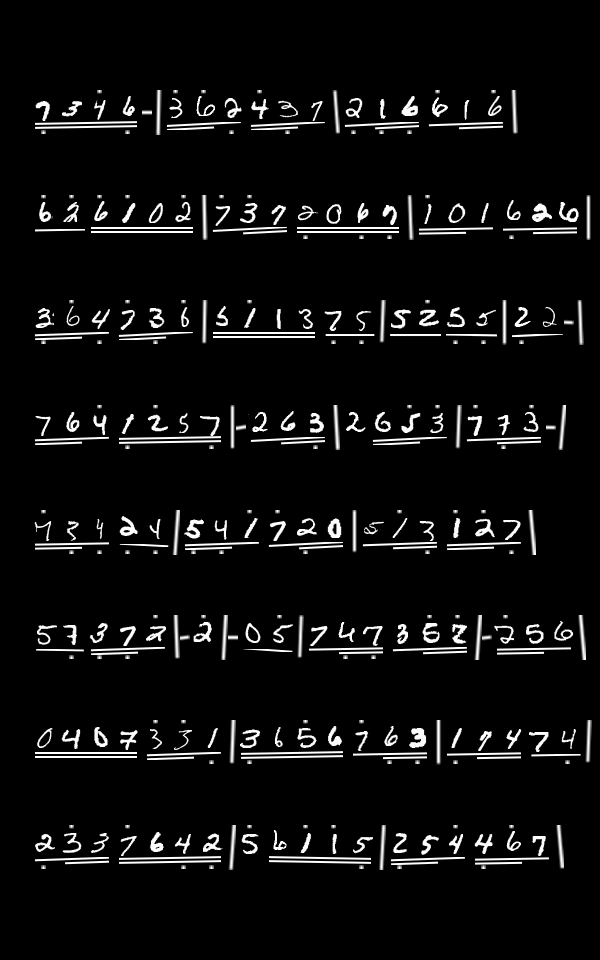 7346-|362437|216616|
626102|2372067|101626|
364736|511375|5255|22-|
7641257|-263|2653|773-|
43424|541720|513127|
57372|-2|-05|747357|-256|
0407331|3656763|17474|
2337642|56115|254467|